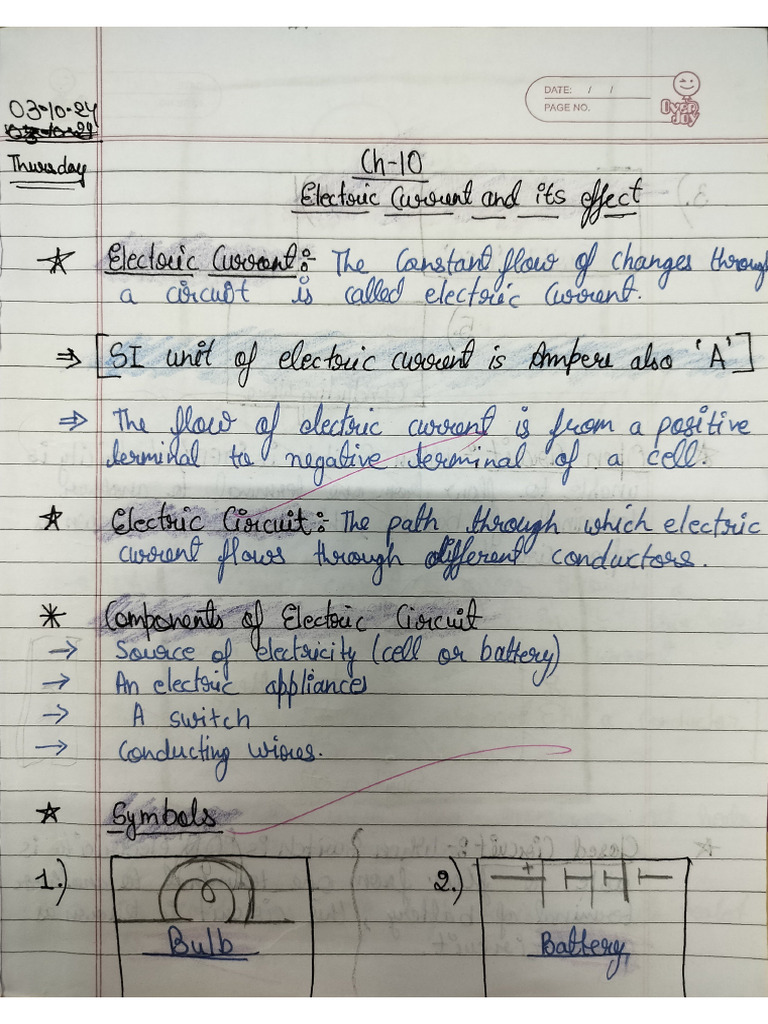 DATE: / /
PAGE NO.
OVER JOY
03-10-24
Thursday
Ch-10
Electric Current and its effect
* Electric Current:- The Constant flow of changes through
a circuit is called electric current.
⇒ [SI unit of electric current is Ampere also 'A']
⇒ The flow of electric current is from a positive
terminal to negative terminal of a cell.
* Electric Circuit:- The path through which electric
current flows through different conductors.
* Components of Electric Circuit
→ Source of electricity (cell or battery)
→ An electric appliances
→ A switch
→ Conducting wires.
* Symbols
1.)
Bulb
2.)
+
Battery